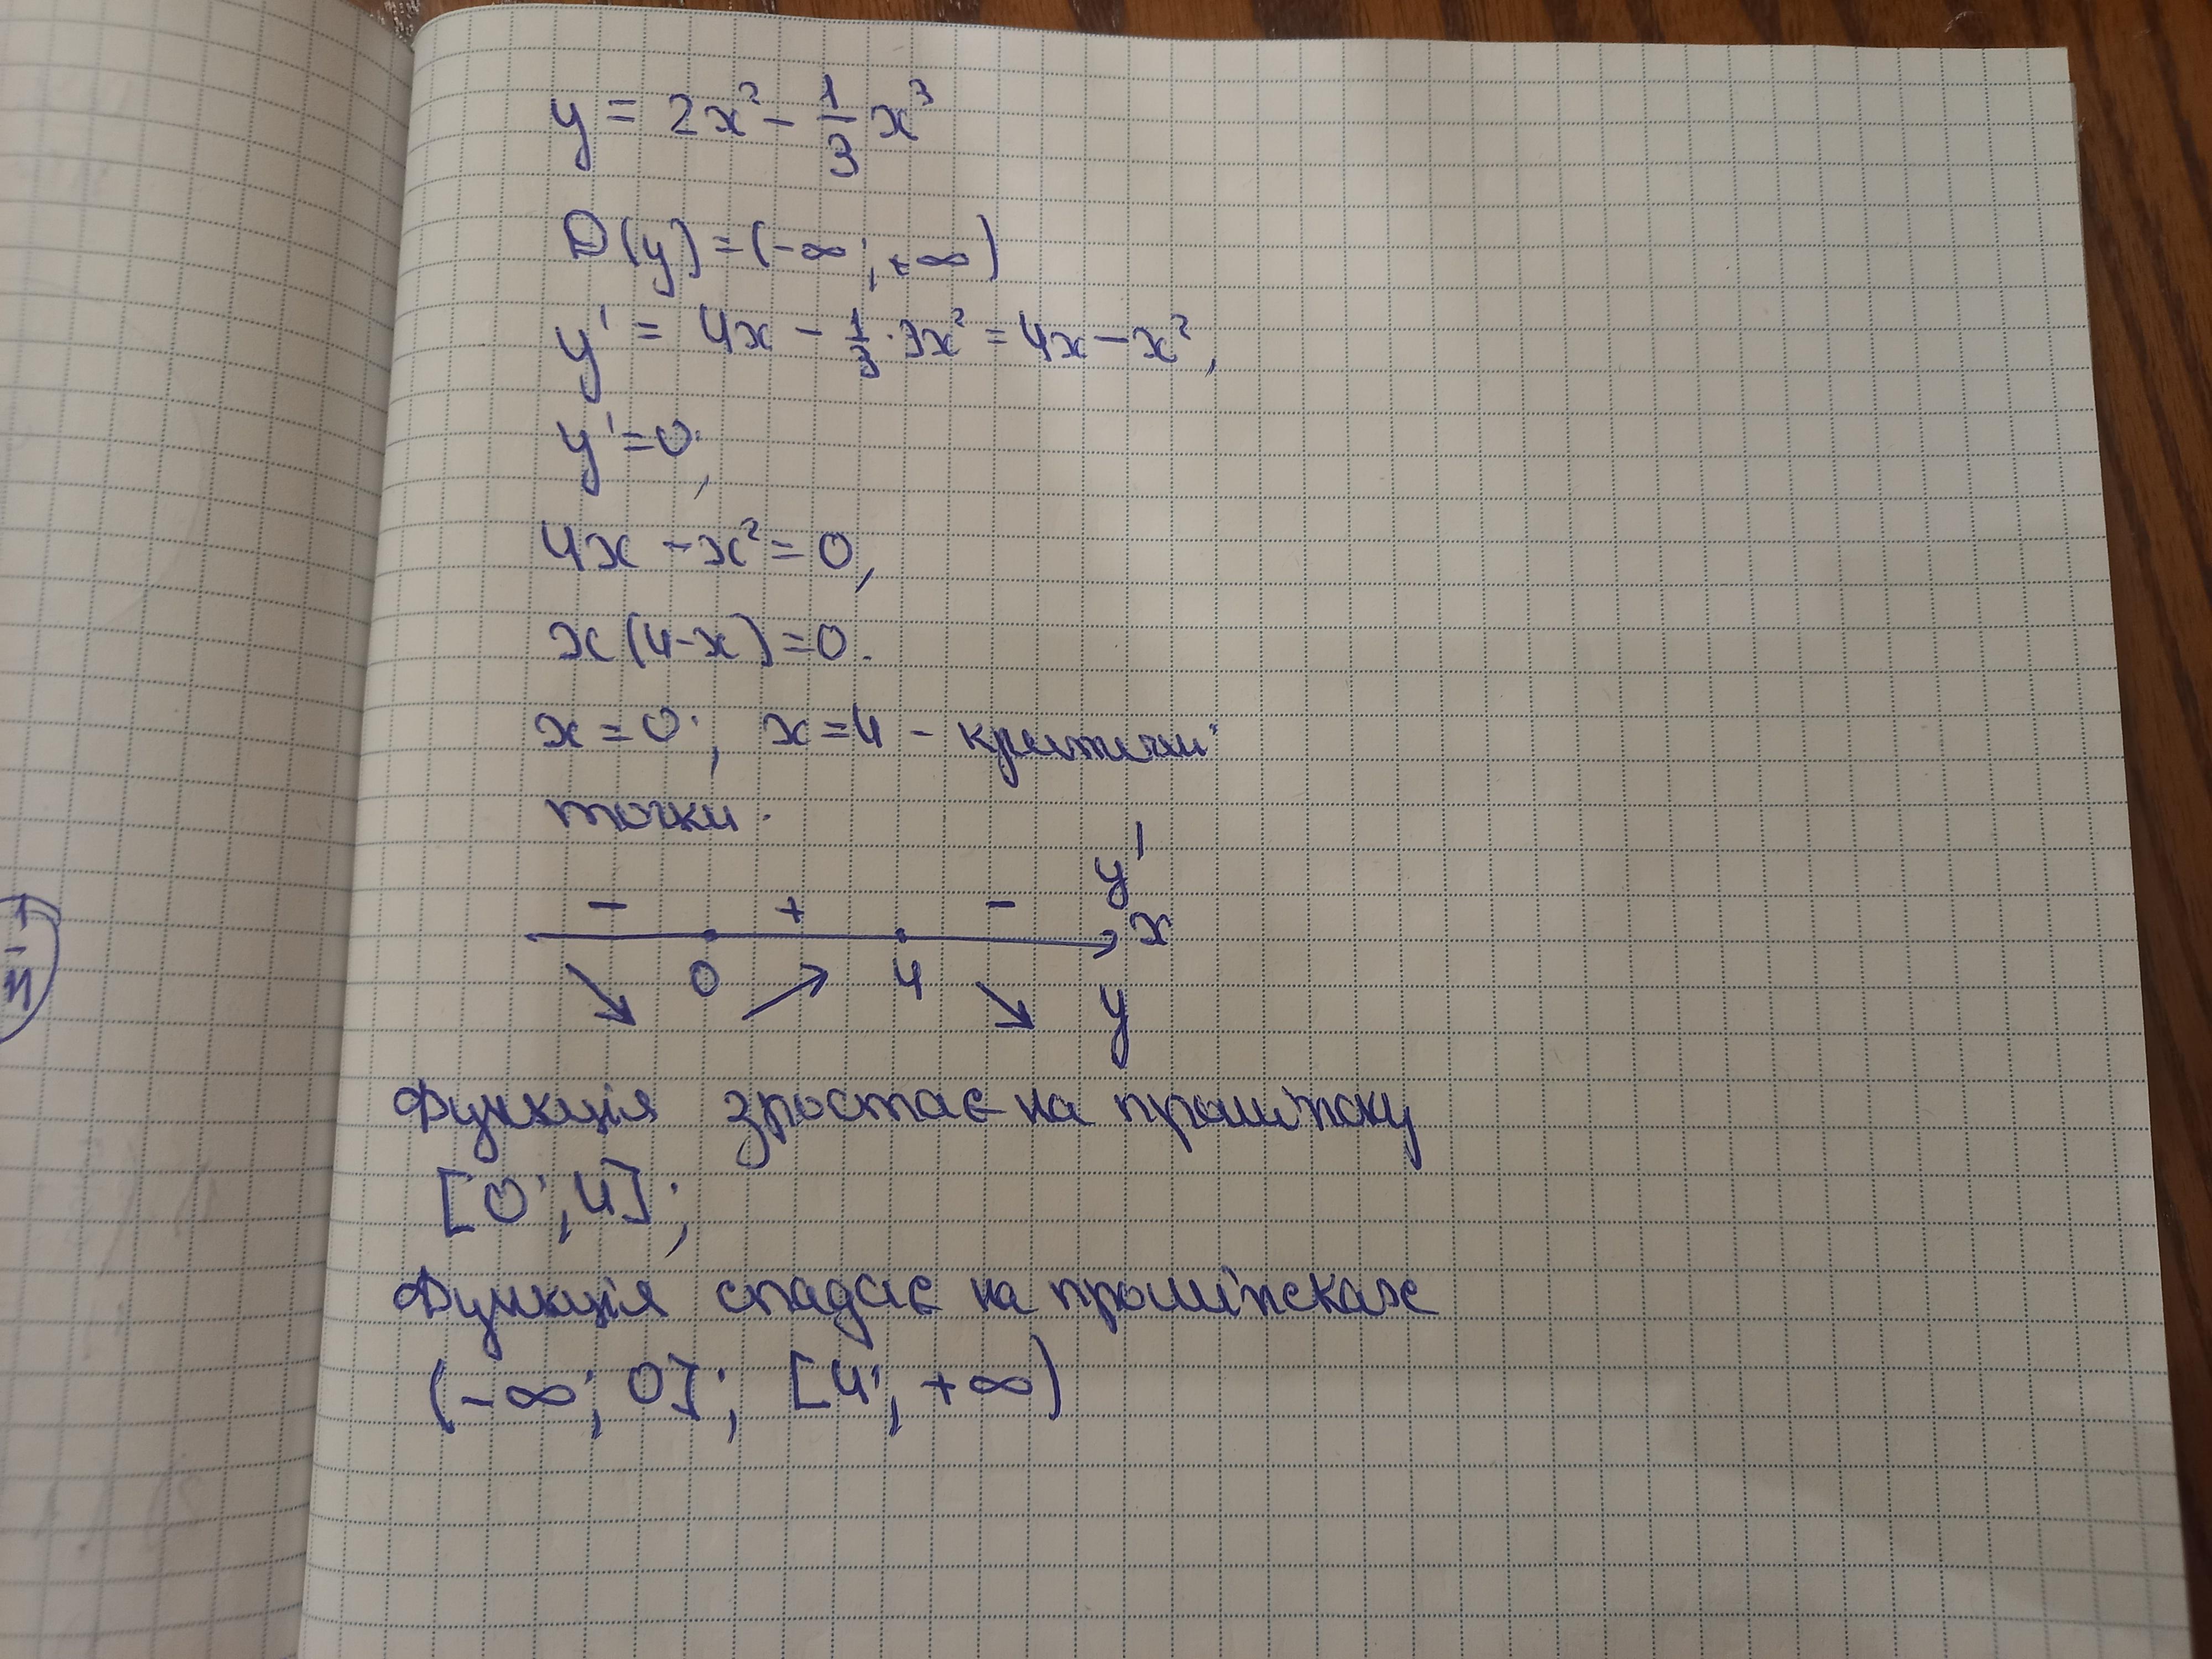 y = 2x² - 1/3 x³
D(y) = (-∞; +∞)
y' = 4x - 1/3 · 3x² = 4x - x²,
y' = 0;
4x - x² = 0,
x(4-x) = 0.
x = 0; x = 4 - критичні
точки.
- + - y'
x
0 4 y
Функція зростає на проміжку
[0; 4];
Функція спадає на проміжках
(-∞; 0]; [4; +∞)